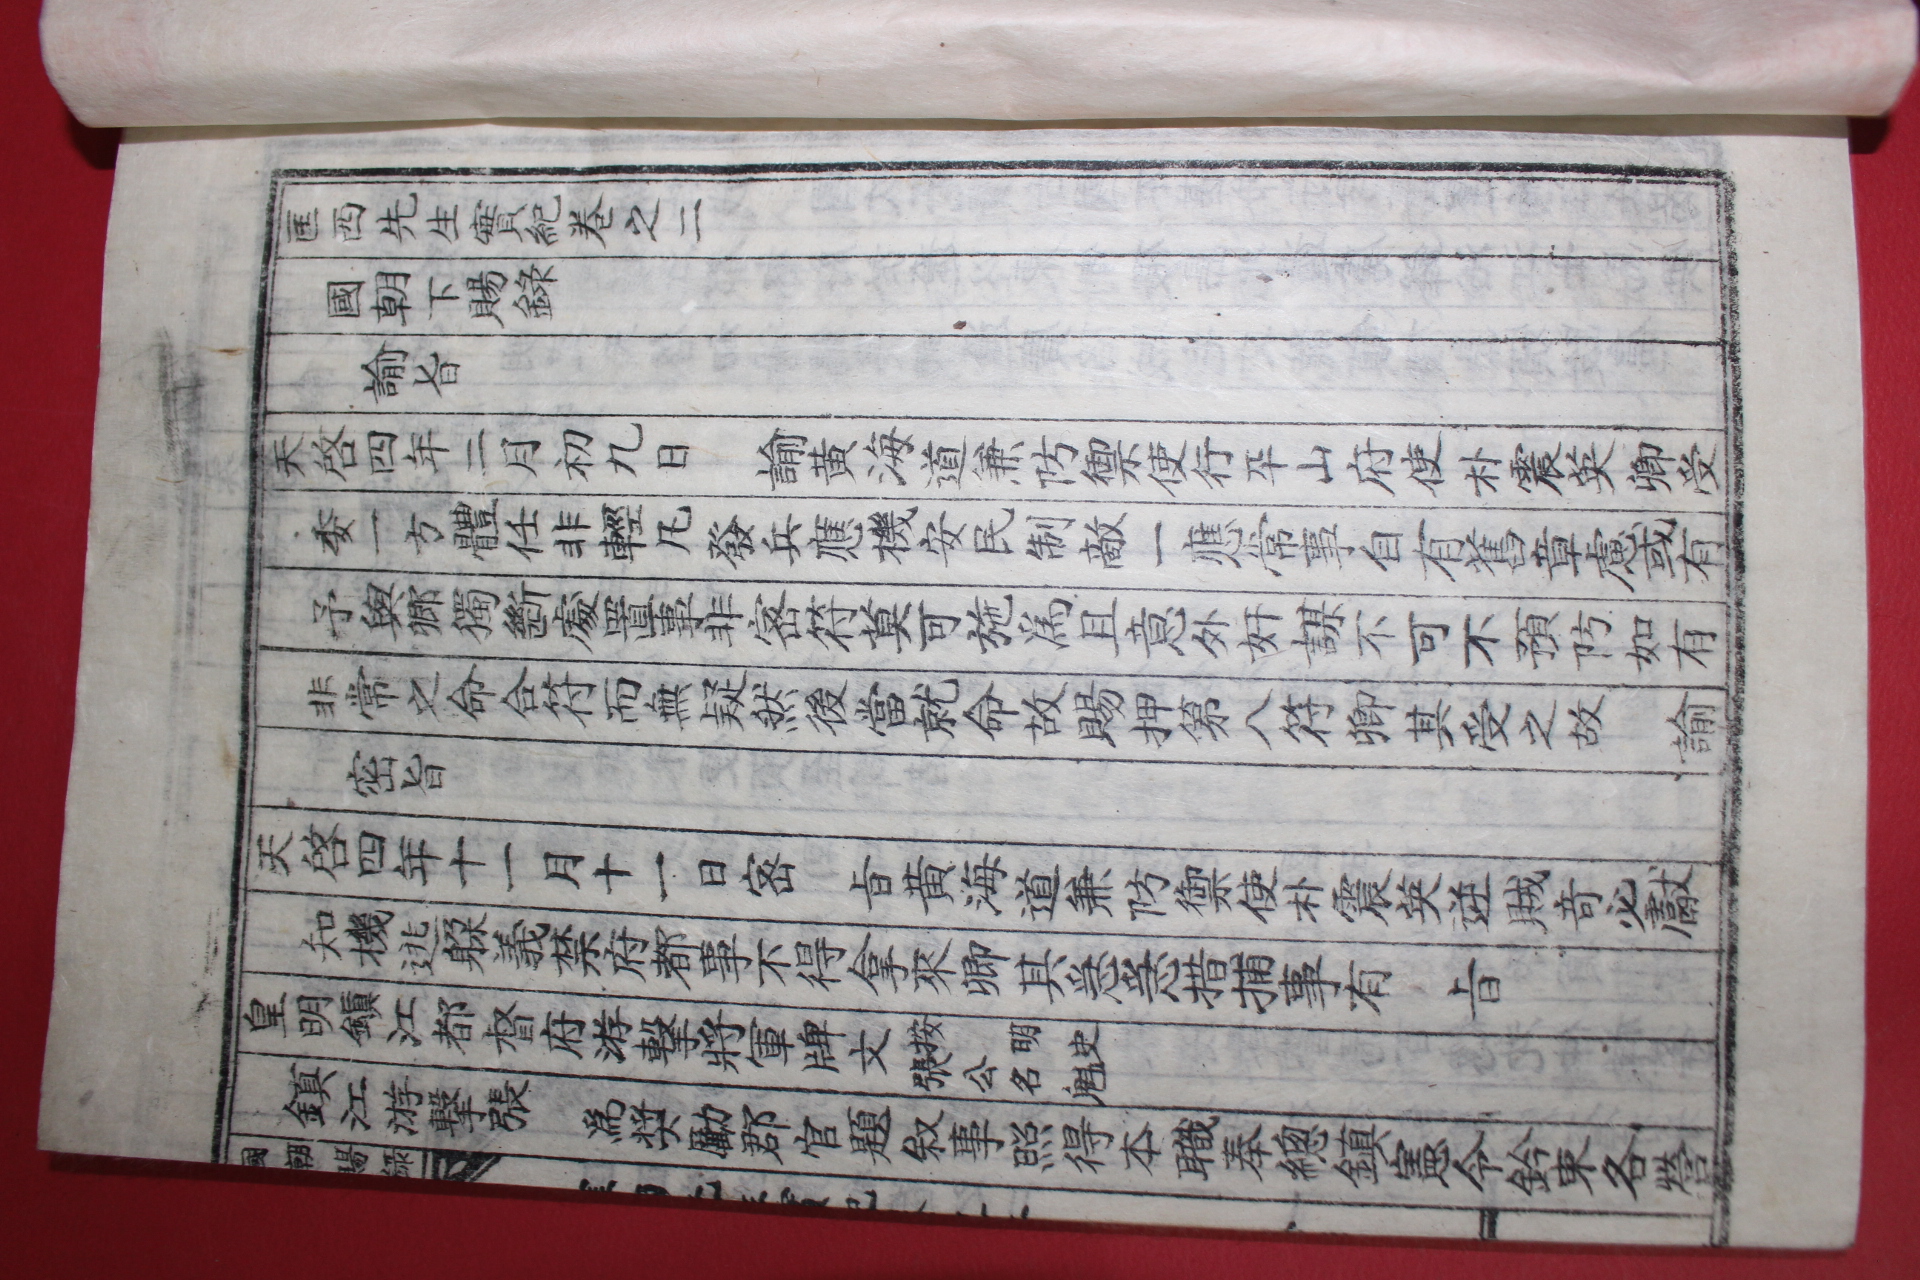 匡西先生實紀卷之二
國朝下賜錄
諭旨
天啓四年二月初九日 諭黃海道兼防禦使行平山府使朴震英卿受
委一方體任非輕凡發兵應機安民制敵一應常事自有舊章慮或有
予與卿獨斷處置事非密符莫可施爲且意外奸謀不可不預防如有
非常之命合符而無疑然後當就命故賜押第八符卿其受之故 諭
密旨
天啓四年十一月十一日密 旨黃海道兼防禦使朴震英逆賊奇必獻
知機逃躱義禁府都事不得拿來卿其急急措捕事有 旨
皇明鎭江都督府游擊將軍牌文 按明史
張公名魁
鎮江游擊張 爲奬勵郡官題叙事照得本職奉總鎮憲令鈐束各營
國朝賜錄